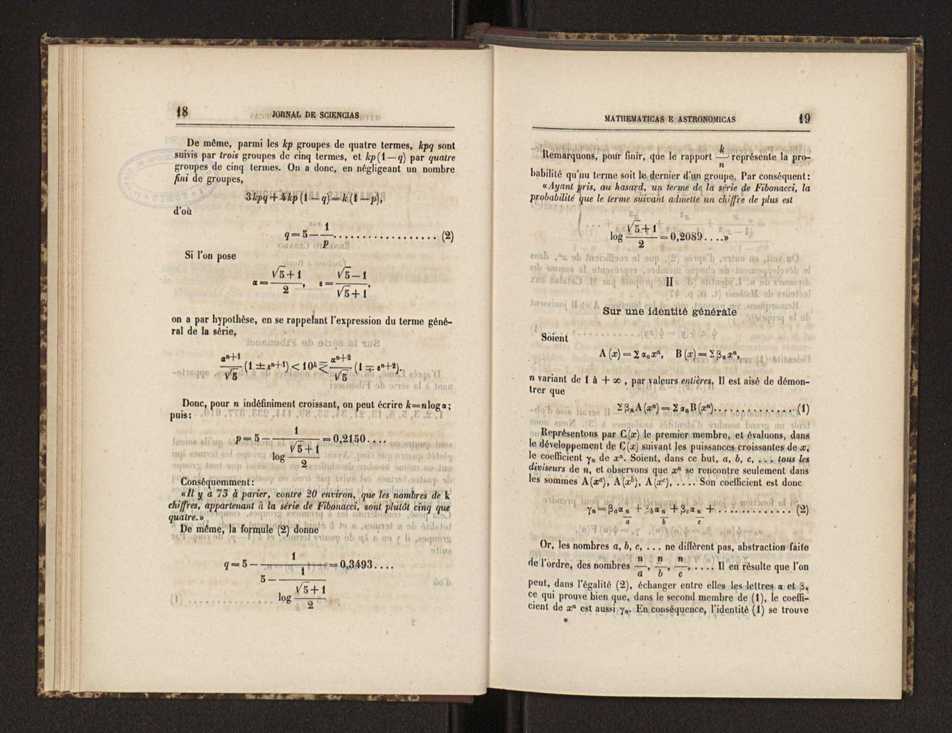 18 JORNAL DE SCIENCIAS
De même, parmi les kp groupes de quatre termes, kpq sont
suivis par trois groupes de cinq termes, et kp(1—q) par quatre
groupes de cinq termes. On a donc, en négligeant un nombre
fini de groupes,
3kpq + 4kp (1 — q) = k (1 — p),
d'où
q = 5 — 1/p . . . . . . . . . . . . . . . . . . (2)
Si l'on pose
α = (√5 + 1)/2, ε = (√5 — 1)/(√5 + 1),
on a par hypothèse, en se rappelant l'expression du terme géné-
ral de la série,
α^(n+1)/√5 (1 ± ε^(n+1)) < 10^k ≤ α^(n+2)/√5 (1 ∓ ε^(n+2)).
Donc, pour n indéfiniment croissant, on peut écrire k = n log α;
puis:
p = 5 — 1/(log (√5 + 1)/2) = 0,2150 . . . .
Conséquemment:
«Il y a 73 à parier, contre 20 environ, que les nombres de k
chiffres, appartenant à la série de Fibonacci, sont plutôt cinq que
quatre.»
De même, la formule (2) donne
q = 5 — 1/(5 — 1/(log (√5 + 1)/2)) = 0,3493 . . . .
MATHEMATICAS E ASTRONOMICAS 19
Remarquons, pour finir, que le rapport k/n représente la pro-
babilité qu'un terme soit le dernier d'un groupe. Par conséquent:
«Ayant pris, au hasard, un terme de la série de Fibonacci, la
probabilité que le terme suivant admette un chiffre de plus est
log (√5 + 1)/2 = 0,2089 . . . .»
II
Sur une identité générale
Soient
A (x) = Σ αₙ xⁿ, B (x) = Σ βₙ xⁿ,
n variant de 1 à + ∞ , par valeurs entières. Il est aisé de démon-
trer que
Σ βₙ A (xⁿ) = Σ αₙ B (xⁿ) . . . . . . . . . . . . . . (1)
Représentons par C (x) le premier membre, et évaluons, dans
le développement de C (x) suivant les puissances croissantes de x,
le coefficient γₙ de xⁿ. Soient, dans ce but, a, b, c, . . . tous les
diviseurs de n, et observons que xⁿ se rencontre seulement dans
les sommes A (xᵃ), A (xᵇ), A (xᶜ), . . . . . Son coefficient est donc
γₙ = β_a α_(n/a) + β_b α_(n/b) + β_c α_(n/c) + . . . . . . . . . . . . . (2)
Or, les nombres a, b, c, . . . ne diffèrent pas, abstraction faite
de l'ordre, des nombres n/a, n/b, n/c, . . . . Il en résulte que l'on
peut, dans l'égalité (2), échanger entre elles les lettres α et β,
ce qui prouve bien que, dans le second membre de (1), le coeffi-
cient de xⁿ est aussi γₙ. En conséquence, l'identité (1) se trouve
*